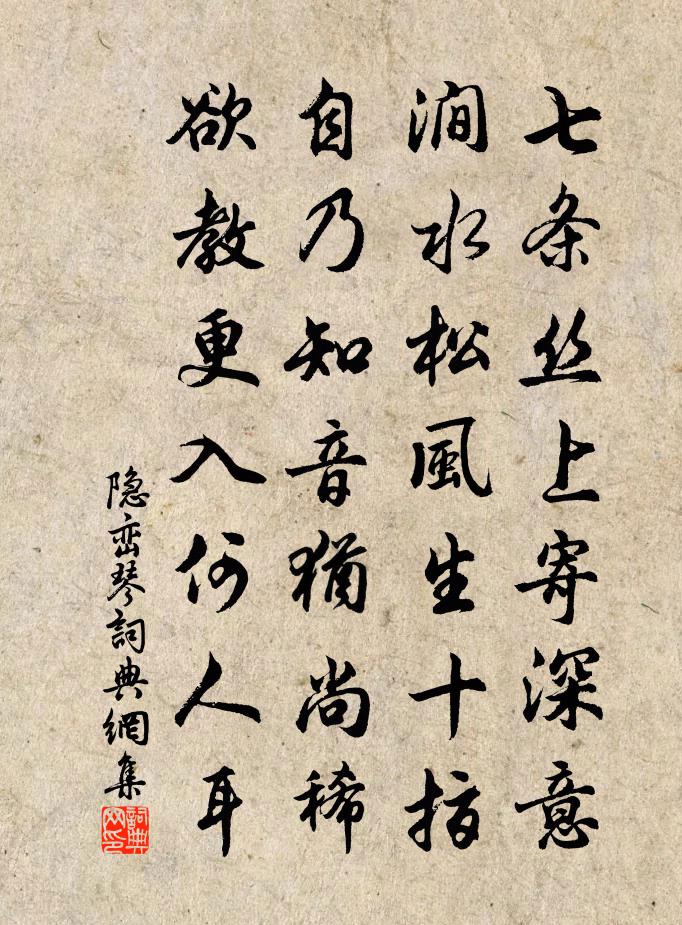 七条丝上寄深意
涧水松風生十指
自乃知音犹尚稀
欲教更入何人耳
隐峦琴詞典網集
詞典
网印